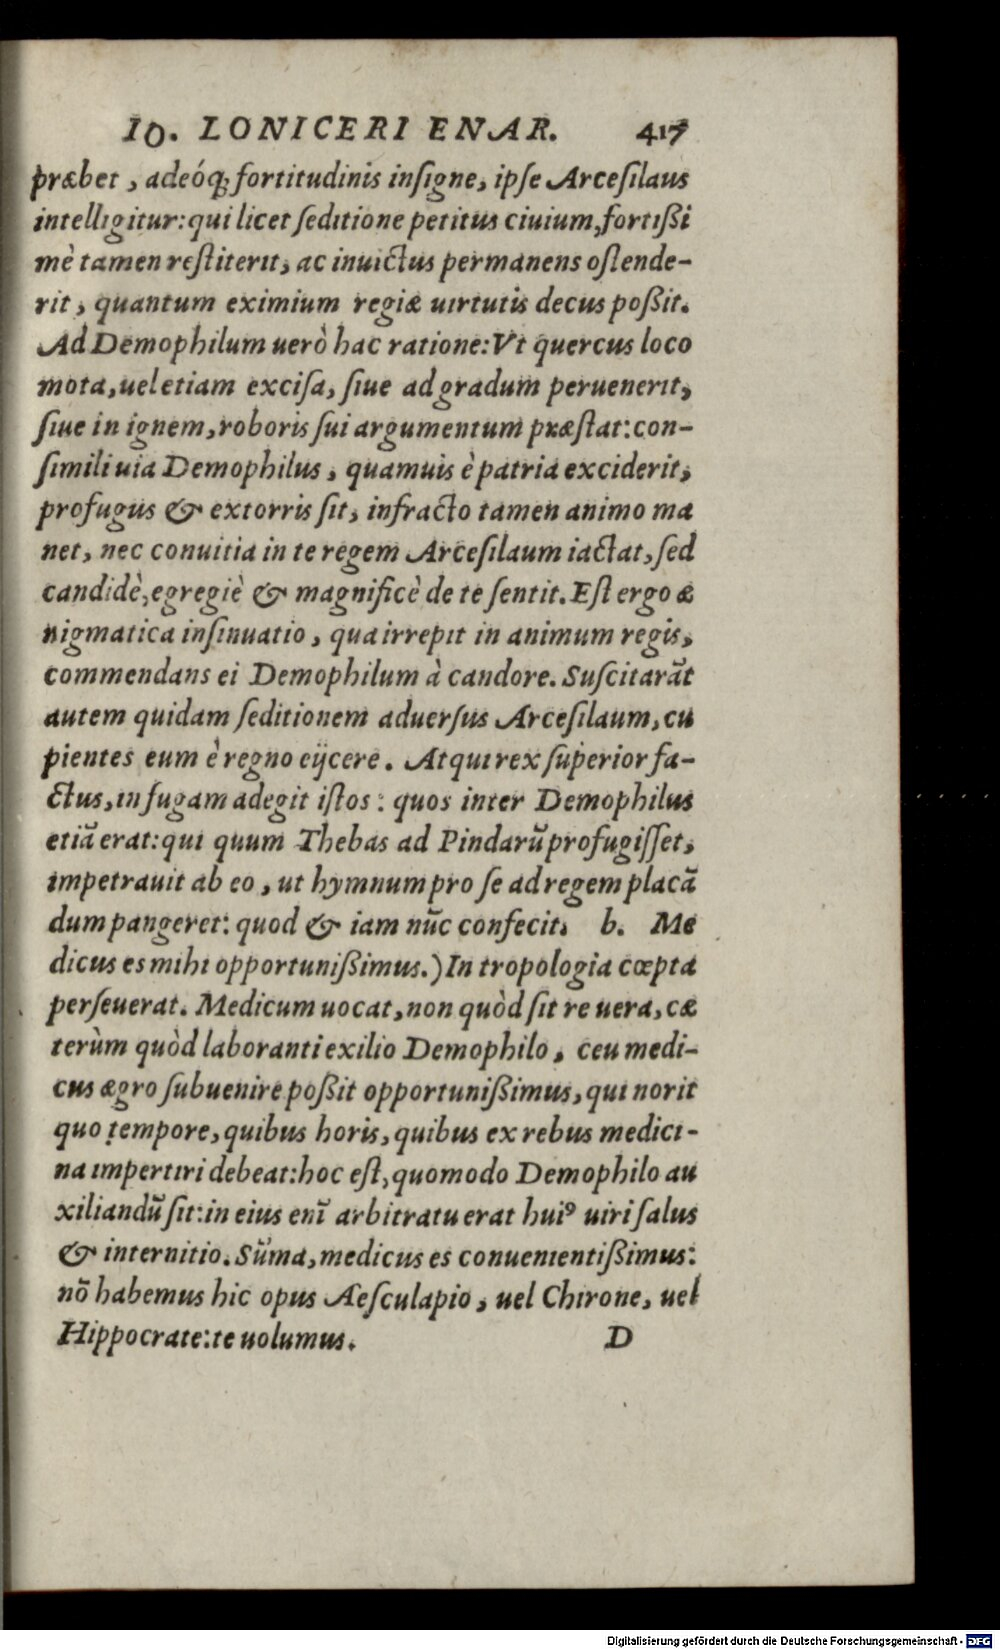 IO. LONICERI ENAR. 417
præbet, adeóq; fortitudinis inſigne, ipſe Arceſilaus
intelligitur: qui licet ſeditione petitus ciuium, fortißi
mè tamen reſtiterit, ac inuictus permanens oſtende-
rit, quantum eximium regiæ uirtutis decus poßit.
Ad Demophilum uerò hac ratione: Vt quercus loco
mota, uel etiam exciſa, ſiue ad gradum peruenerit,
ſiue in ignem, roboris ſui argumentum præſtat: con-
ſimili uia Demophilus, quamuis è patria exciderit,
profugus & extorris ſit, infracto tamen animo ma
net, nec conuitia in te regem Arceſilaum iactat, ſed
candidè, egregiè & magnificè de te ſentit. Eſt ergo æ
nigmatica inſinuatio, qua irrepit in animum regis,
commendans ei Demophilum à candore. Suſcitarãt
autem quidam ſeditionem aduerſus Arceſilaum, cu
pientes eum è regno eijcere. Atqui rex ſuperior fa-
ctus, in fugam adegit iſtos: quos inter Demophilus
etiã erat: qui quum Thebas ad Pindarũ profugiſſet,
impetrauit ab eo, ut hymnum pro ſe ad regem placã
dum pangeret: quod & iam nũc confecit. b. Me
dicus es mihi opportunißimus.) In tropologia cœpta
perſeuerat. Medicum uocat, non quòd ſit re uera, cæ
terùm quòd laboranti exilio Demophilo, ceu medi-
cus ægro ſubuenire poßit opportunißimus, qui norit
quo tempore, quibus horis, quibus ex rebus medici-
na impertiri debeat: hoc eſt, quomodo Demophilo au
xiliandũ ſit: in eius enĩ arbitratu erat huiꝰ uiri ſalus
& internitio. Sũma, medicus es conuenientißimus:
nõ habemus hic opus Aeſculapio, uel Chirone, uel
Hippocrate: te uolumus. D
Digitalisierung gefördert durch die Deutsche Forschungsgemeinschaft - DFG